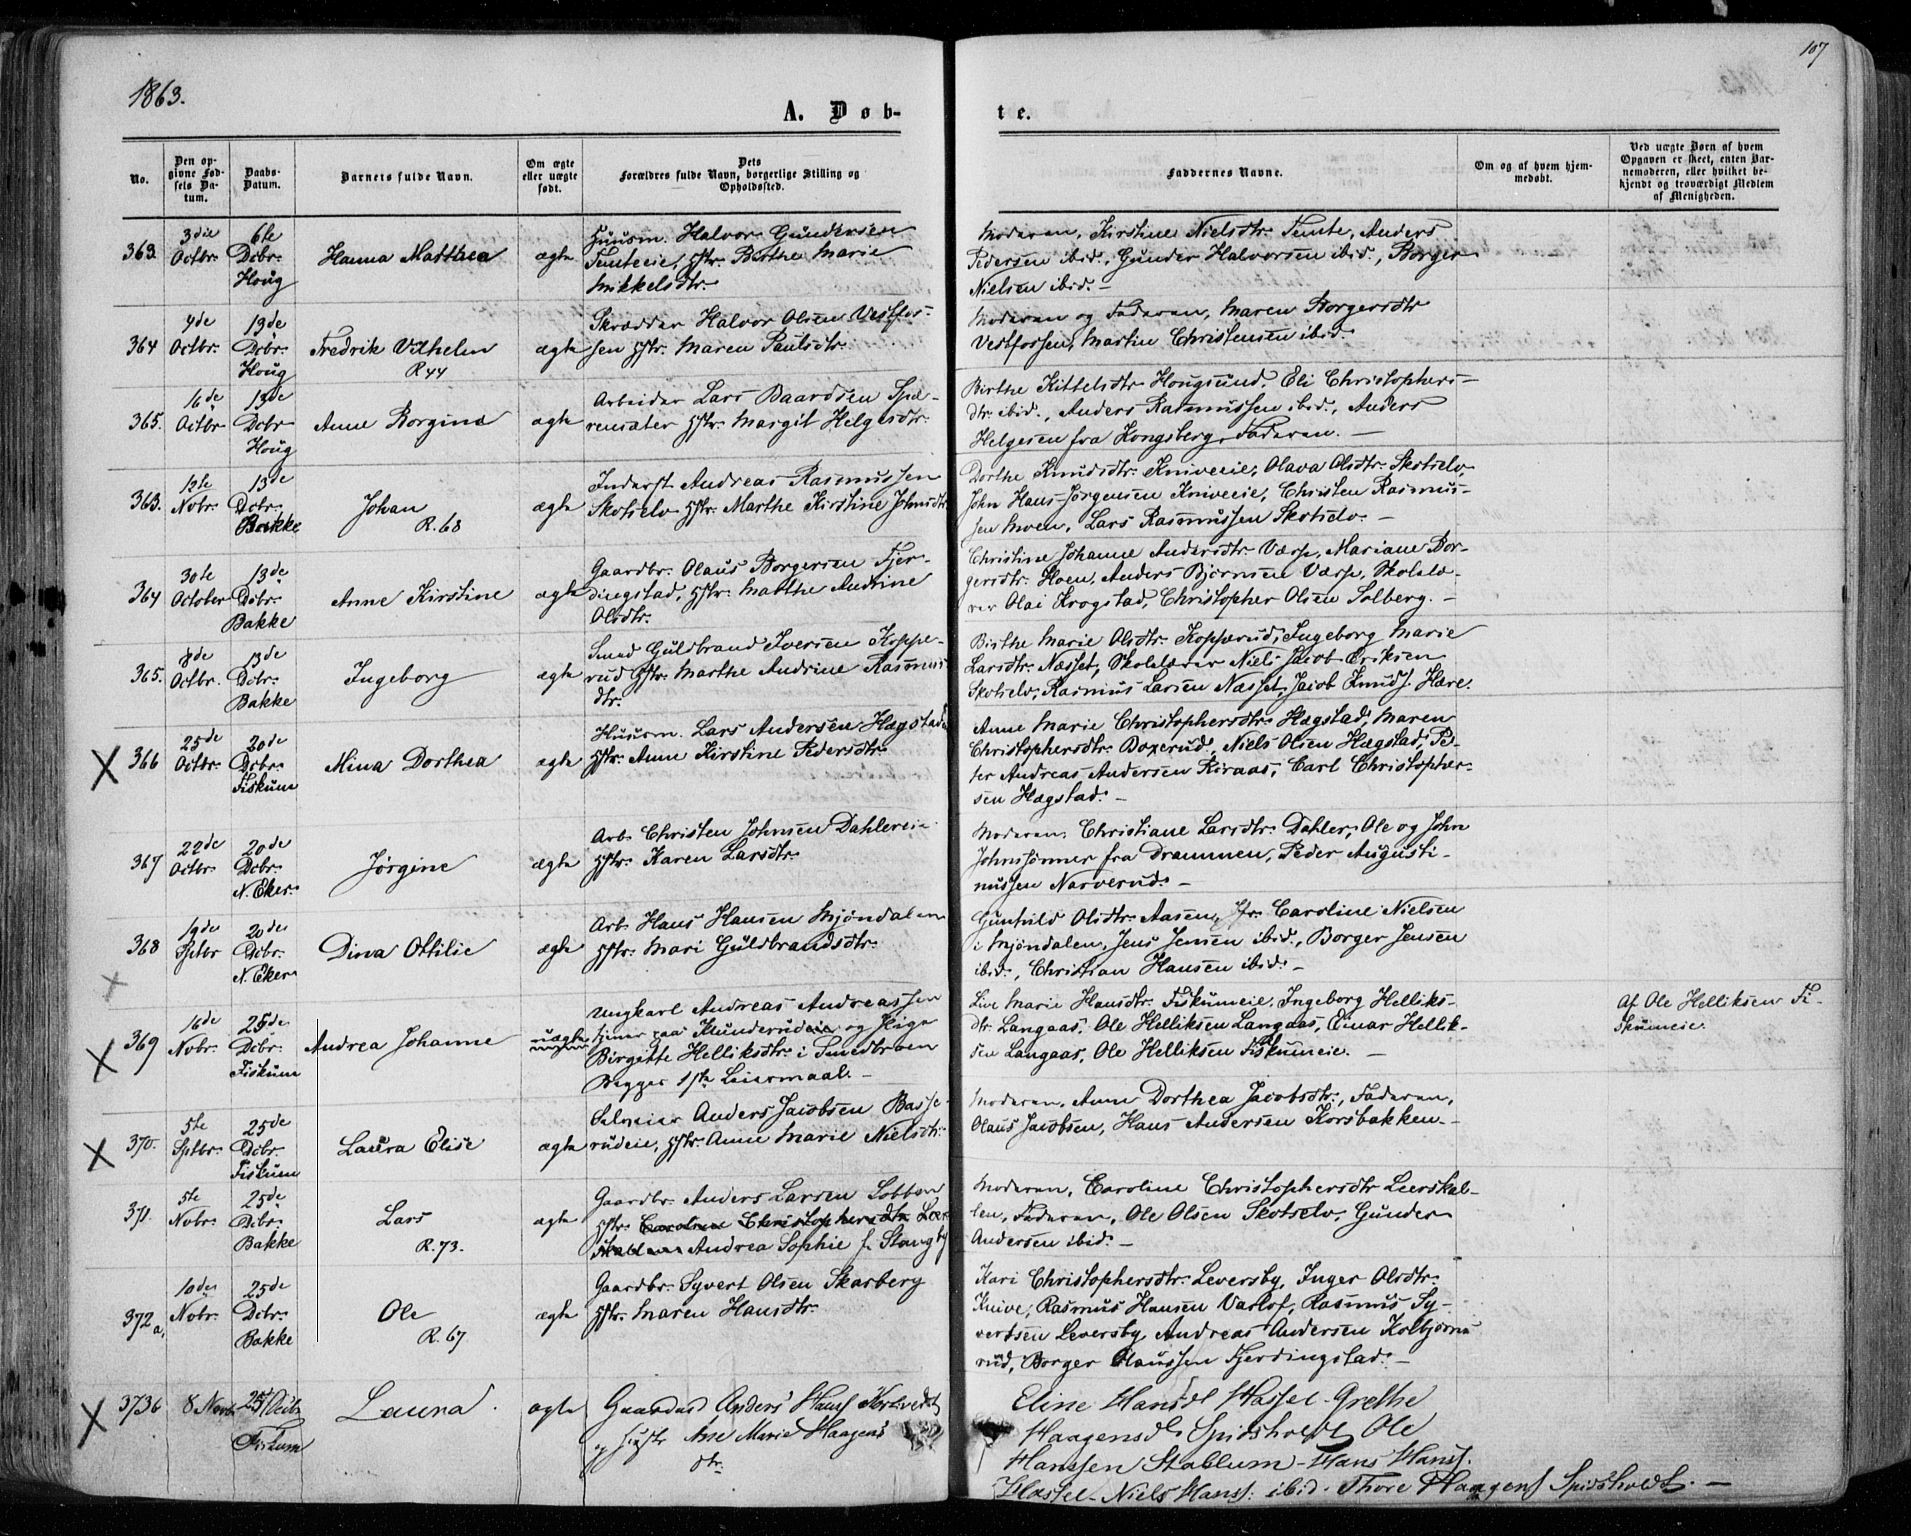 107
1863.
A. Døb-
te.
No.
Den op-
givne Fød-
sels Da-
tum.
Daabs-
Datum.
Barnets fulde Navn.
Om ægte
eller uægte
født.
Dets
Forældres fulde Navn, borgerlige Stilling og
Opholdssted.
Faddernes Navne.
Om og af hvem hjem-
medøbt.
Ved uægte Børn af hvem
Opgaven er skeet, enten Bar-
nemoderen, eller hvilket be-
kjendt og troværdigt Medlem
af Menigheden.
363.
3die
Octbr.
6te
Dcbr.
Houg
Hanna Matthea
ægte
Huusm. Halvor Gundersen
Temteeie, Hstr. Birthe Marie
Mikkelsdtr.
Moderen, Kirstine Nielsdtr. Temte, Anders
Pedersen ibid., Gunder Halvorsen ibid., Borger
Nielsen ibid. –
364
4de
Octbr.
13de
Dcbr.
Houg
Fredrik Vilhelm
R 44
ægte
Skrædder Halvor Olsen Vestfos-
sen Hstr. Maren Paulsdtr.
Moderen og Faderen, Maren Borgersdtr
Vestfossen, Martin Christensen ibid.
365.
16de
Octbr
13de
Dcbr
Houg
Anne Borgine
ægte
Arbeider Lars Baardsen Spæ-
rensæter Hstr. Margit Helgesdtr.
Birthe Kittelsdtr. Hougsund, Eli Christophers-
dtr. ibid., Anders Rasmussen ibid., Anders
Helgesen fra Kongsberg, Faderen. –
363.
12te
Nobr.
13de
Dcbr.
Bakke
Johan
R. 68
ægte
Inderst Andreas Rasmussen
Skotselv Hstr. Marthe Kirstine Johnsdtr
Dorthe Knudsdtr. Kniveeie, Olava Olsdtr. Skotselv
John Hans-Jørgensen Kniveeie, Christen Rasmus-
sen Moen, Lars Rasmussen Skotselv. –
364
30te
October
13de
Dcbr.
Bakke
Anne Kirstine
ægte
Gaardbr. Olaus Borgersen Fjer-
dingstad, Hstr. Marthe Andrine
Olsdtr.
Christine Johanne Andersdtr. Værp, Mariane Bor-
gersdtr. Hoen, Anders Bjørnsen Værp, Skolelæ-
rer Olai Krogstad, Christopher Olsen Solberg. –
365.
8de
Octbr.
13de
Dcbr.
Bakke
Ingeborg
ægte
Smed Guldbrand Iversen Koppe-
rud Hstr. Marthe Andrine Rasmus-
dtr.
Birthe Marie Olsdtr. Kopperud, Ingeborg Marie
Larsdtr. Næsset, Skolelærer Niels Jacob Eriksen
Skotselv, Rasmus Larsen Næsset, Jacob Knuds. Hære.
X 366
25de
Octbr.
20de
Dcbr.
Fiskum
Mina Dorthea
ægte
Husm. Lars Andersen Hægstad
Hstr. Anne Kirstine Pedersdtr.
Anne Marie Christophersdtr. Hægstad, Maren
Christophersdtr. Boxerud, Niels Olsen Hægstad, Pe-
ter Andreas Andersen Kiraas, Carl Christopher-
sen Hægstad. –
367
22de
Octbr.
20de
Dcbr.
N. Eker.
Jørgine
ægte
Arb. Christen Johnsen Dahlereie
Hstr. Karen Larsdtr.
Moderen, Christiane Larsdtr. Dahler, Ole og John
Johnsønner fra Drammen, Peder Augusti-
nussen Narverud. –
368
19de
Sptbr
20de
Dcbr.
N. Eker
Dina Ottilie
ægte
Arb. Hans Hansen Mjøndalen
Hstr. Mari Guldbrandsdtr.
Gunhild Olsdtr. Aasen, Jfr. Caroline Nielsen
i Mjøndalen, Jens Jensen ibid., Borger Jensen
ibid., Christian Hansen ibid. –
X
X 369
16de
Nobr.
25de
Dcbr.
Fiskum
Andrea Johanne
uægte
Ungkarl Andreas Andreassen
tjener paa Kunderudeie og Pige
Birgitte Helliksdtr. i Smedbraaen
Begges 1ste Leiermaal. –
Live Marie Hansdtr. Fiskumeie, Ingeborg Helliks-
dtr. Langaas, Ole Helliksen Langaas, Einar Hellik-
sen Langaas, Ole Helliksen Fiskumeie. –
Af Ole Helliksen Fi-
skumeie.
X 370.
5te
Sptbr.
25de
Dcbr.
Fiskum
Laura Elise
ægte
Selveier Anders Jacobsen Basse-
rudeie, Hstr. Anne Marie Nielsdtr.
Moderen, Anne Dorthea Jacobsdtr., Faderen,
Olaus Jacobsen, Hans Andersen Korsbakken. –
371.
5te
Nobr.
25de
Dcbr.
Bakke
Lars
R. 73.
ægte
Gaardbr. Anders Larsen Lobben
Hstr. Caroline Christophersdtr Leer
skallen Andrea Sophie f. Stangby
Moderen, Caroline Christophersdtr Leerskal-
len, Faderen, Ole Olsen Skotselv, Gunder
Andersen ibid. –
372a,
10de
Nobr.
25de
Dcbr.
Bakke
Ole
R. 67
ægte
Gaardbr. Syvert Olsen Skarberg
Hstr. Maren Hansdtr.
Kari Christophersdtr. Leversby, Inger Olsdtr.
Knive, Rasmus Hansen Varlof, Rasmus Sy-
vertsen Leversby, Andreas Andersen Kolbjørns
rud, Borger Olaussen Fjerdingstad. –
X 373b
8 Novb
25/Decbr
Fiskum
Laura.
ægte
Gaardbd Anders Hans
og Hustr Ane Marie Haagens
dtr.
Eline Hansd Hassel – Grethe
Haagensd. Spidsholdt, Ole
Hanssen Stablum – Hans Hanss.
Hassel – Niels Hanss. ibid – Thore Haagens Spidsholdt. –